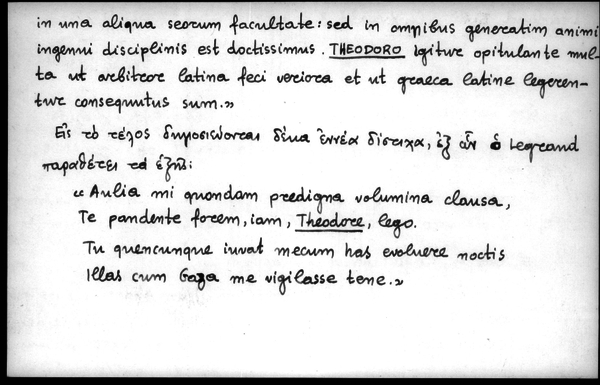 in una aliqua seorsum facultate: sed in omnibus generatim animi
ingenui disciplinis est doctissimus. THEODORO igitur opitulante mul-
ta ut arbitror latina feci veriora et ut graeca latine legeren-
tur consequutus sum.»
Εἰς τὸ τέλος δημοσιεύονται δέκα ἐννέα δίστιχα, ἐξ ὧν ὁ Legrand
παραθέτει τὰ ἑξῆς:
« Aulia mi quondam predigna volumina clausa,
Te pandente forem, iam, Theodore, lego.
Tu quencunque iuvat mecum has evoluere noctis
Illas cum Gaza me vigilasse tene.»